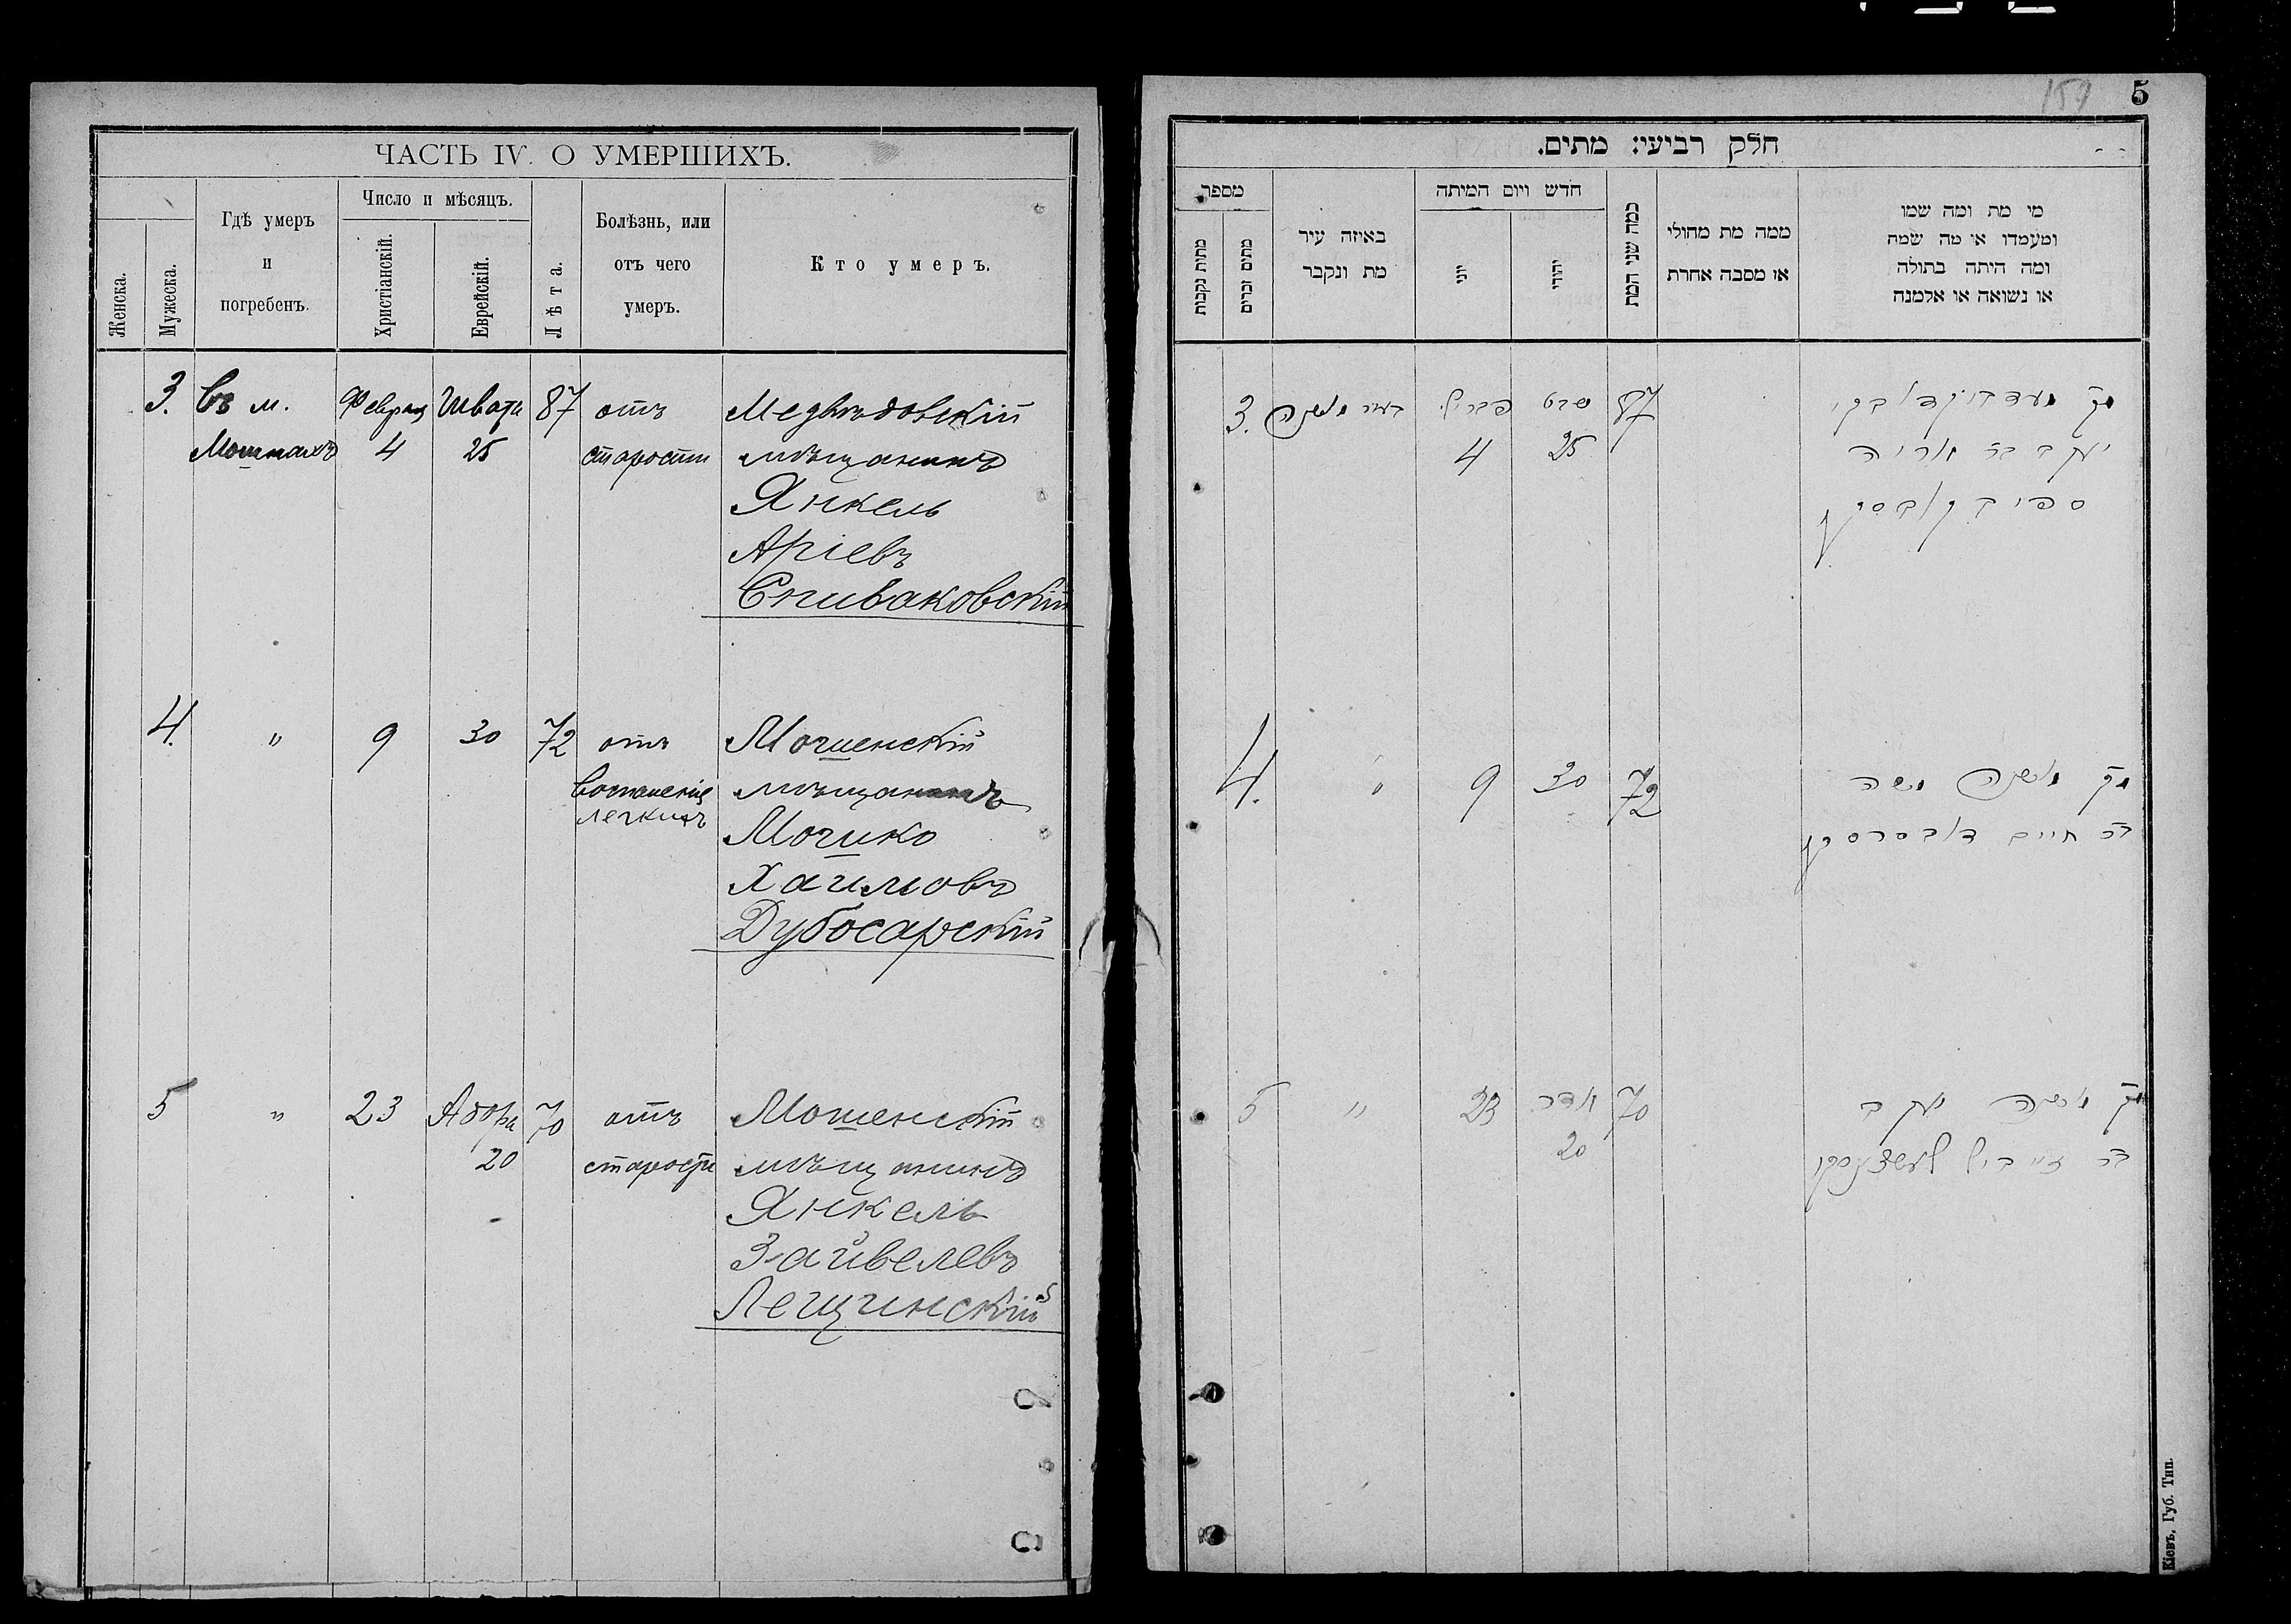 ЧАСТЬ IV. О УМЕРШИХЪ.
Женска.
Мужеска.
Гдѣ умеръ
и
погребенъ.
Число и мѣсяцъ.
Христіанскій.
Еврейскій.
Лѣта.
Болѣзнь, или
отъ чего
умеръ.
Кто умеръ.
3. Въ м. Феврал Швата 87 отъ Медвѣдовскій
Мошнахъ 4 25 старости мѣщанинъ
Янкель
Аріевъ
Спиваковскій
4. " 9 30 72 отъ Мошенскій
воспаленія мѣщанинъ
легкихъ
Мошко
Хаимовъ
Дубосарскій
5 " 23 Адора 70 отъ Мошенскій
20 старости мѣщанинъ
Янкель
Зайвелевъ
Лещинскій
159 5
חלק רביעי: מתים.
מספר
מתות נקבות
מתים זכרים
באיזה עיר
מת ונקבר
חדש ויום המיתה
יוני
יהודי
כמה שני המת
ממה מת מחולי
או מסבה אחרת
מי מת ומה שמו
ומעמדו או מה שמה
ומה היתה בתולה
או נשואה או אלמנה
3. 87 שבט
4 25 יעקב בר אריה
ספיבקאווסקי
4. " 9 30 72 משה
בר חיים
5 " 23 אדר 70 יעקב
20 בר
Кіевъ, Губ. Тип.